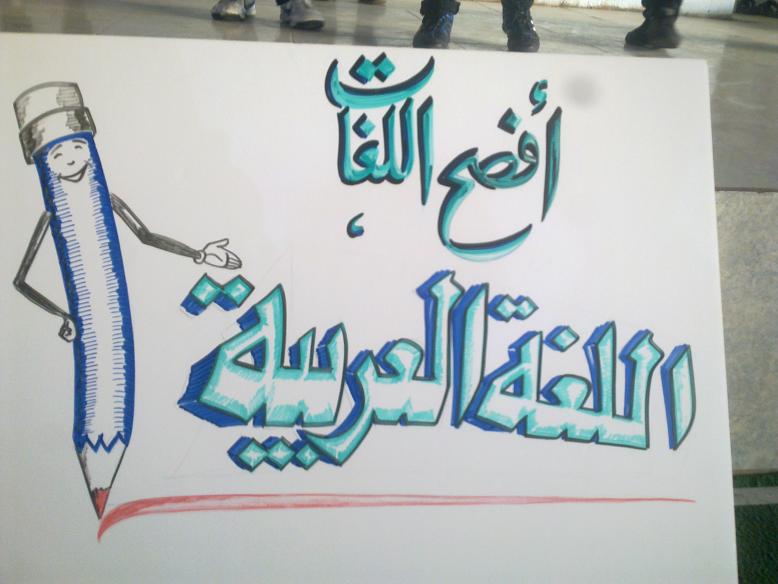 أفصح
اللغات ،
اللغة العربية